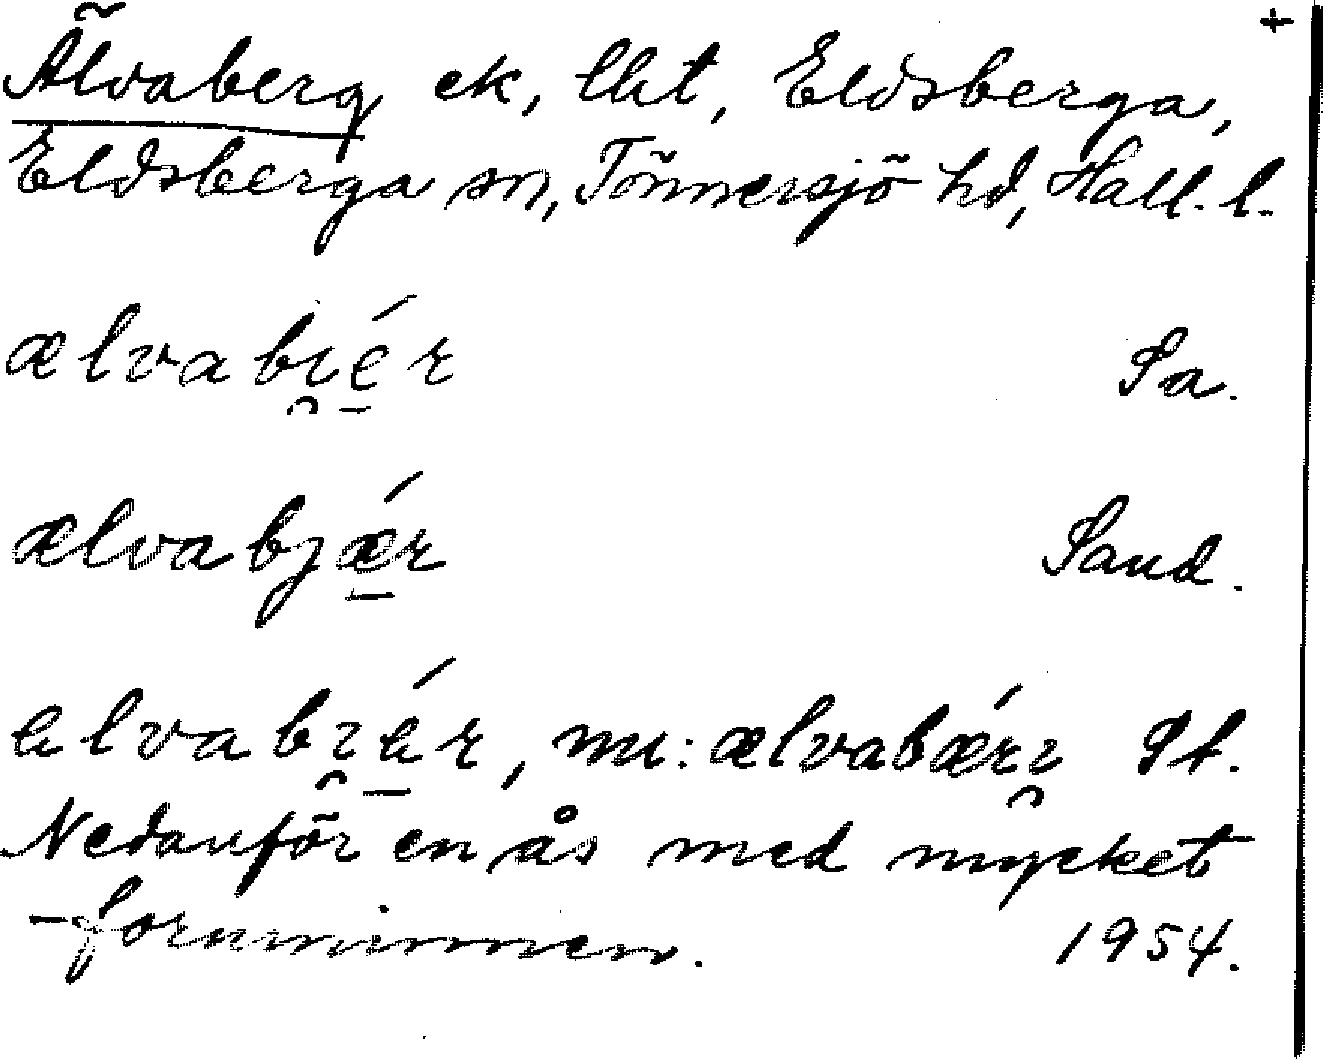 +
Älvaberg ek, lht, Eldsberga,
Eldsberga sn, Tönnersjö hd, Hall. l.
ælvabi̯é̱r Sa.
ælvabjǽ̱r Sand.
elvabi̯é̱r, nu: ælvabǽri̯ St.
Nedanför en ås med mycket
fornminnen. 1954.